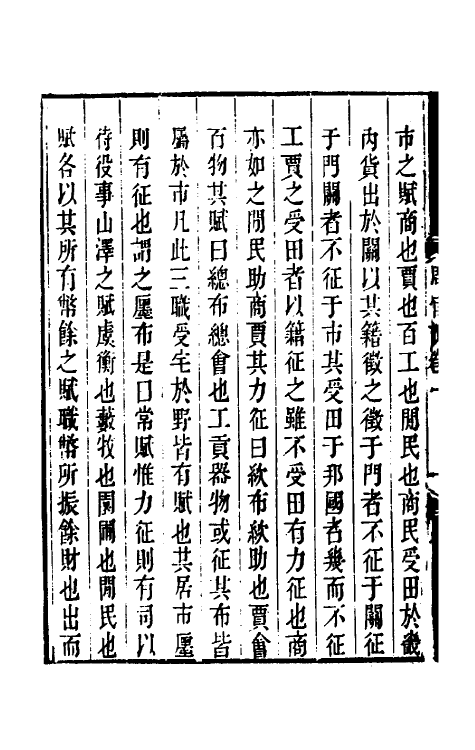 市之賦商也賈也百工也閒民也商民受田於畿
內貨出於關以其籍徵之徵于門者不征于關征
于門關者不征于市其受田于邦國者幾而不征
工賈之受田者以籍征之雖不受田有力征也商
亦如之閒民助商賈其力征曰絘布絘助也賈會
百物其賦曰總布總會也工貢器物或征其布皆
屬於市凡此三職受宅於野皆有賦也其居市廛
則有征也謂之廛布是曰常賦惟力征則有司以
待役事山澤之賦虞衡也藪牧也園圃也閒民也
賦各以其所有幣餘之賦職幣所振餘財也出而